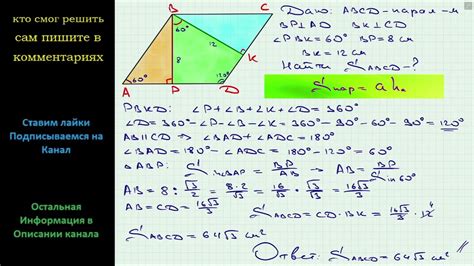 кто смог решить
сам пишите в
комментариях
Ставим лайки
Подписываемся на
Канал
Остальная
Информация в
Описании канала
B
C
60°
12
8
K
60°
120°
A
P
D
Дано: ABCD-парал-м
BP⊥AD BK⊥CD
∠PBK=60° BP=8см
BK=12см
Найти SABCD-?
Sпар = a hₐ
PBKD: ∠P+∠B+∠K+∠D=360°
∠D=360°-∠P-∠B-∠K=360°-90°-60°-90°=120°
AB∥CD ⇒ ∠BAD+∠ADC=180°
∠BAD=180°-∠ADC=180°-120°=60°
△ABP: sin∠BAP = BP/AB ⇒ AB = BP/sin60°
AB = 8 : √3/2 = 8·2/√3 = 16/√3 · √3/√3 = 16√3/3
AB=CD= 16√3/3 SABCD=CD·BK= 16√3/3 · 12 4
SABCD=64√3 см²
Ответ: SABCD=64√3 см²